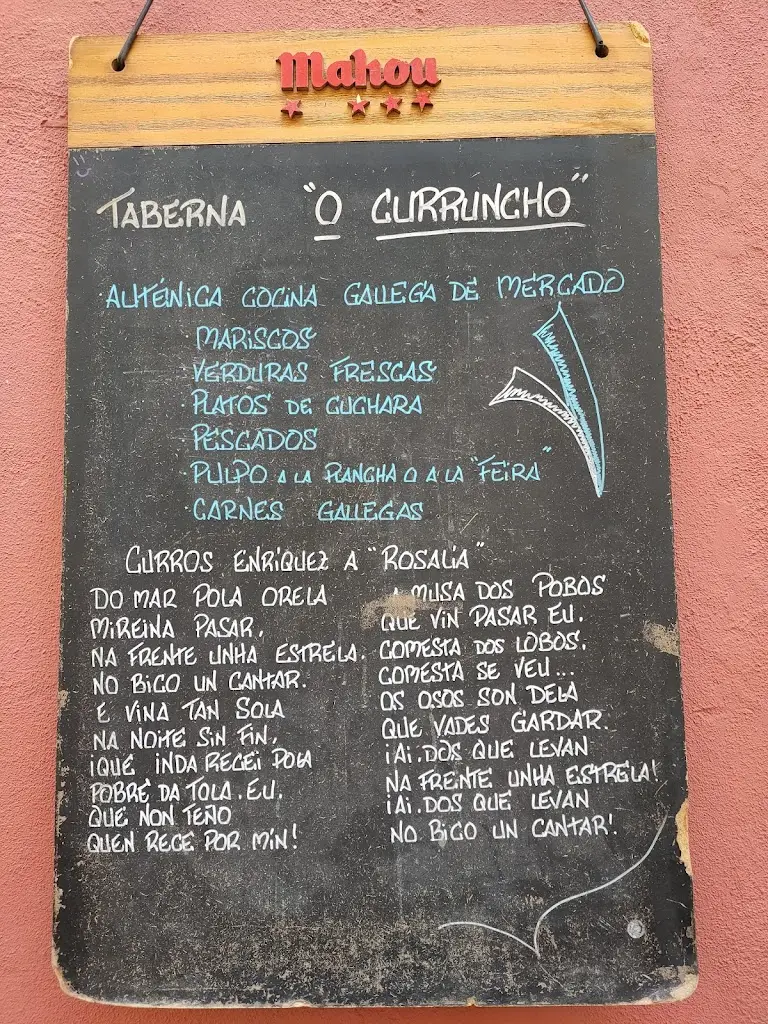 Mahou
TABERNA "O CURRUNCHO"
AUTÉNICA COCINA GALLEGA DE MERCADO
MARISCOS
VERDURAS FRESCAS
PLATOS DE CUCHARA
PESCADOS
PULPO A LA PLANCHA O A LA "FEIRA"
CARNES GALLEGAS
CURROS ENRIQUEZ A "ROSALIA"
DO MAR POLA ORELA
MIREINA PASAR,
NA FRENTE UNHA ESTRELA.
NO BICO UN CANTAR.
E VINA TAN SOLA
NA NOITE SIN FIN,
¡QUE INDA RECEI POLA
POBRE DA TOLA. EU,
QUE NON TEÑO
QUEN RECE POR MIN!
A MUSA DOS POBOS
QUE VIN PASAR EU.
COMESTA DOS LOBOS,
COMESTA SE VEU...
OS OSOS SON DELA
QUE VADES GARDAR.
¡AI. DOS QUE LEVAN
NA FRENTE UNHA ESTRELA!
¡AI. DOS QUE LEVAN
NO BICO UN CANTAR!